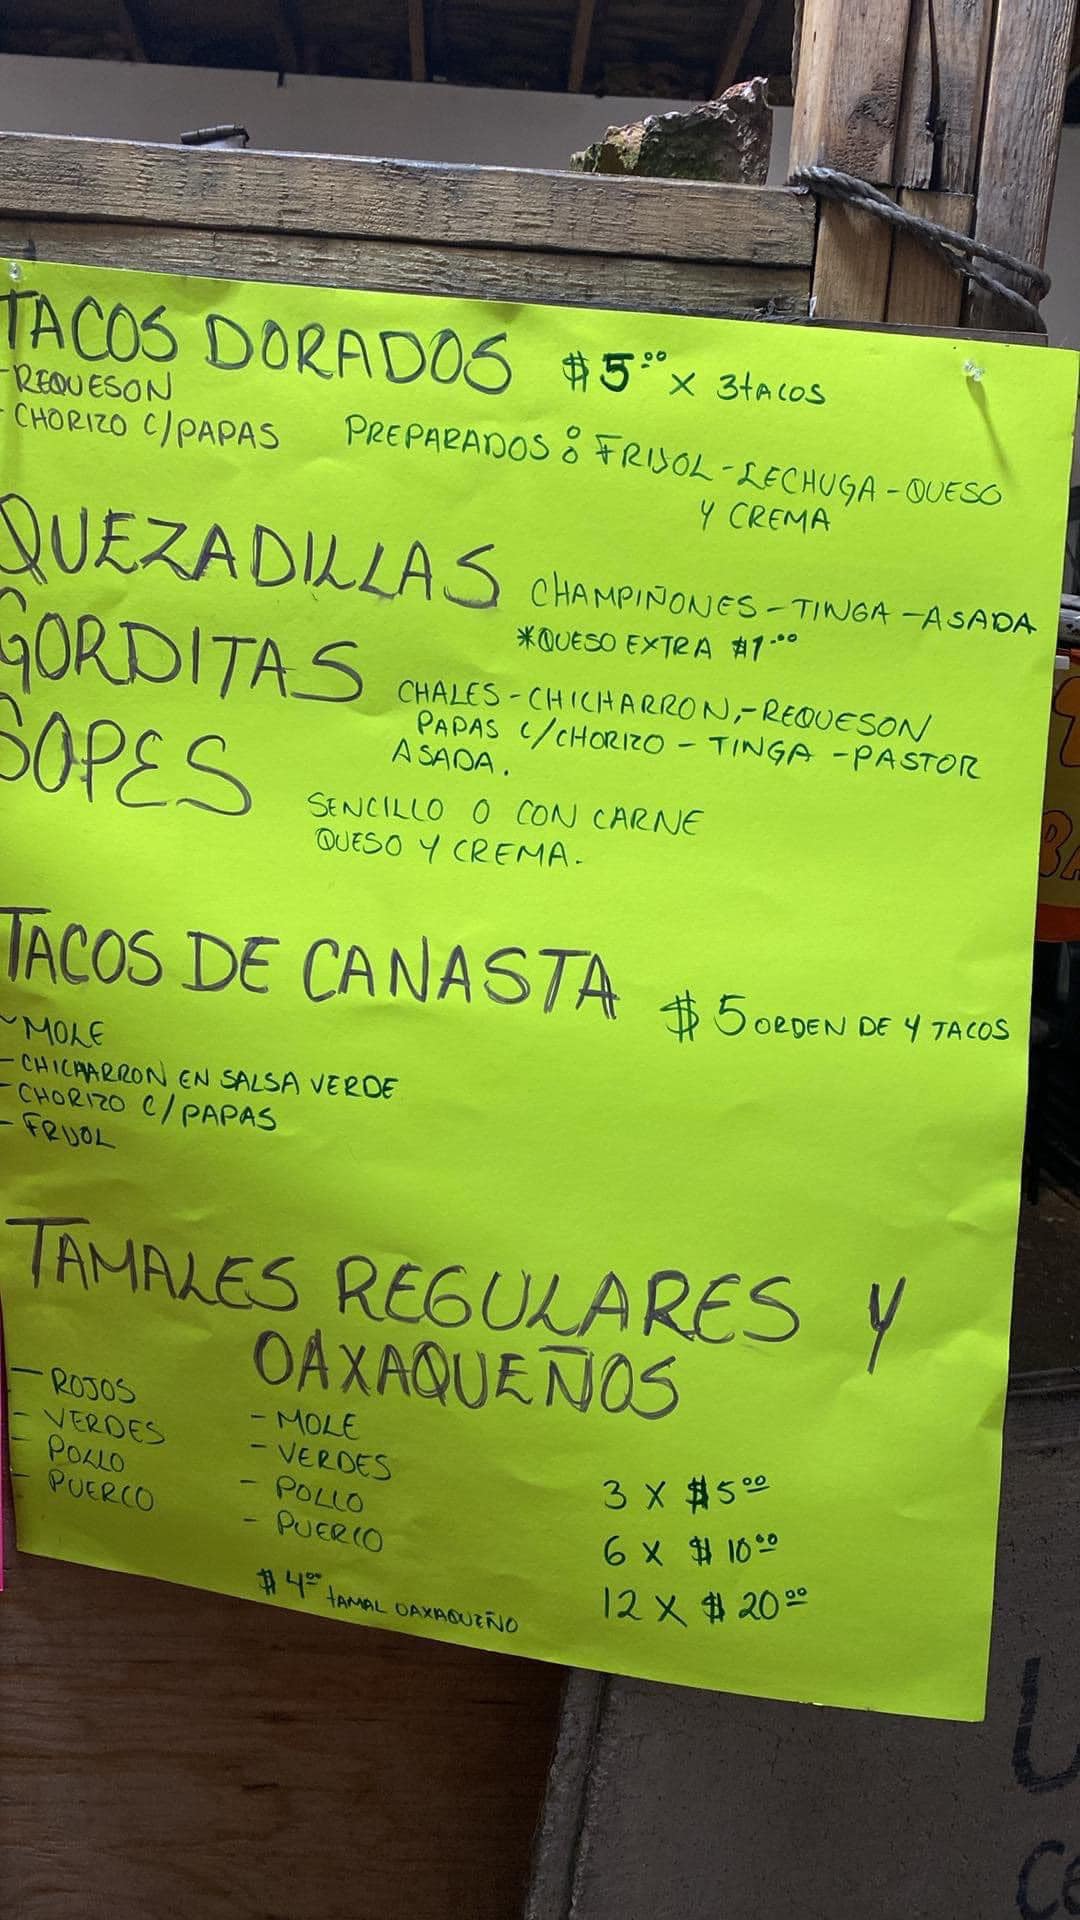 TACOS DORADOS $5.00 X 3 TACOS
- REQUESON
- CHORIZO C/PAPAS PREPARADOS: FRIJOL - LECHUGA - QUESO
Y CREMA
QUEZADILLAS CHAMPIÑONES - TINGA - ASADA
*QUESO EXTRA $1.00
GORDITAS CHALES - CHICHARRON, - REQUESON
PAPAS C/CHORIZO - TINGA - PASTOR
ASADA.
SOPES SENCILLO O CON CARNE
QUESO Y CREMA.
TACOS DE CANASTA $5 ORDEN DE 4 TACOS
- MOLE
- CHICHARRON EN SALSA VERDE
- CHORIZO C/PAPAS
- FRIJOL
TAMALES REGULARES Y
OAXAQUEÑOS
- ROJOS
- VERDES
- POLLO
- PUERCO
- MOLE
- VERDES
- POLLO
- PUERCO
$4.00 TAMAL OAXAQUEÑO
3 X $5.00
6 X $10.00
12 X $20.00